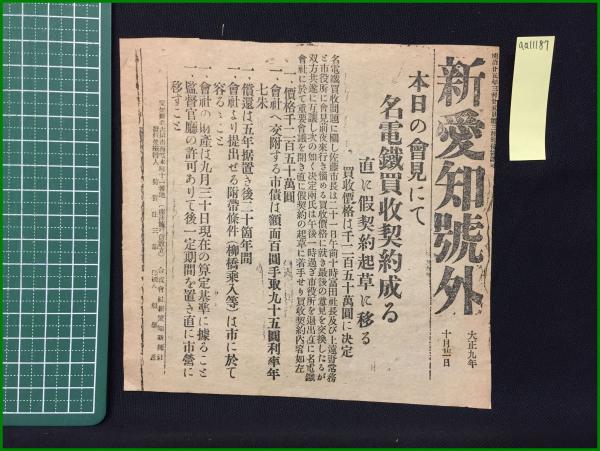 aa11187
新愛知號外
大正九年
十月廿一日
本日の會見にて
名電鐵買收契約成る
直に假契約起草に移る
買收價格は千二百五十萬圓に決定
名電鐵買收問題に關し佐藤市長は二十一日午前十時富田社長及び上遠野常務
と市役所に會見前夜來行き惱める買收價格に就き最後の意見を交換したるが
双方共遂に互議し次の如く決定兩氏は午後一時過ぎ市役所を退出直に名電鐵
會社に於て重要會議を開き直に假契約の起草に着手せり買收契約內容如左
一、價格千二百五十萬圓
一、會社へ交附する市債は額面百圓手取九十五圓利率年
七朱
一、償還は五年据置き後二十箇年間
一、會社より提出せる附帶條件(柳橋乘入等)は市に於て
容るゝこと
一、會社の財產は九月三十日現在の算定基準に據ること
一、監督官廳の許可ありて後一定期間を置き直に市營に
移すこと